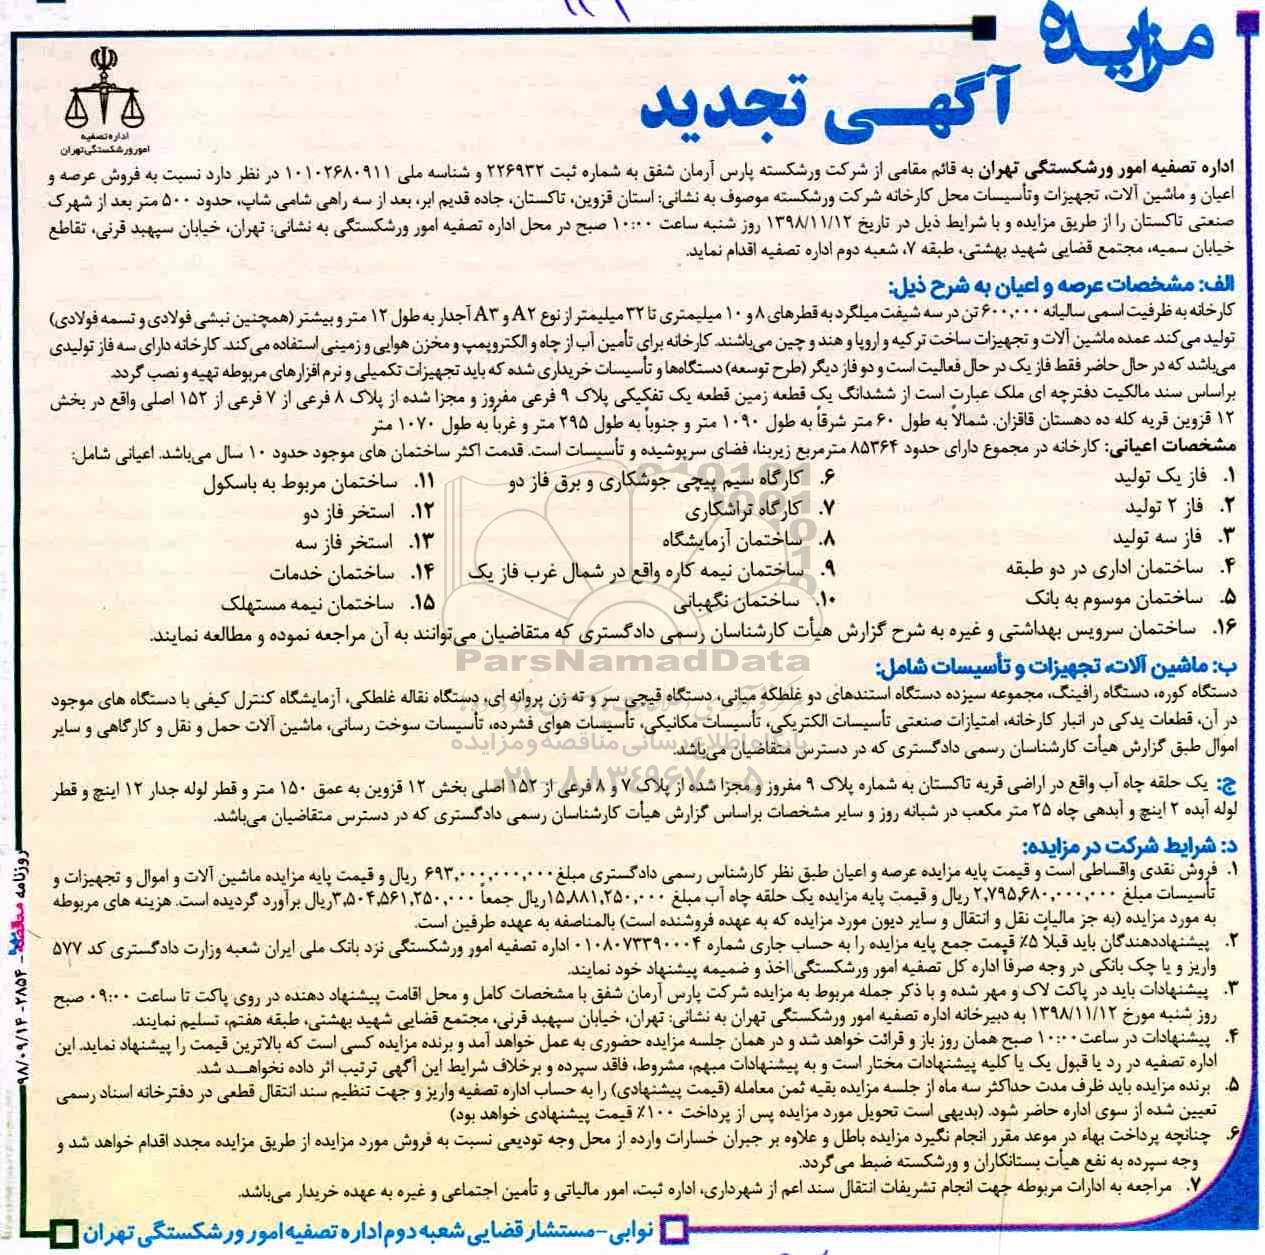 مزایده
آگهی تجدید
اداره تصفیه
امور ورشکستگی تهران
اداره تصفیه امور ورشکستگی تهران به قائم مقامی از شرکت ورشکسته پارس آرمان شفق به شماره ثبت ۲۲۶۹۳۲ و شناسه ملی ۱۰۱۰۲۶۸۰۹۱۱ در نظر دارد نسبت به فروش عرصه و
اعیان و ماشین آلات، تجهیزات وتأسیسات محل کارخانه شرکت ورشکسته موصوف به نشانی: استان قزوین، تاکستان، جاده قدیم ابر، بعد از سه راهی شامی شاپ، حدود ۵۰۰ متر بعد از شهرک
صنعتی تاکستان را از طریق مزایده و با شرایط ذیل در تاریخ ۱۳۹۸/۱۱/۱۲ روز شنبه ساعت ۱۰:۰۰ صبح در محل اداره تصفیه امور ورشکستگی به نشانی: تهران، خیابان سپهبد قرنی، تقاطع
خیابان سمیه، مجتمع قضایی شهید بهشتی، طبقه ۷، شعبه دوم اداره تصفیه اقدام نماید.
الف: مشخصات عرصه و اعیان به شرح ذیل:
کارخانه به ظرفیت اسمی سالیانه ۶۰۰,۰۰۰ تن در سه شیفت میلگرد به قطرهای ۸ و ۱۰ میلیمتری تا ۳۲ میلیمتر از نوع A۲ و A۳ آجدار به طول ۱۲ متر و بیشتر (همچنین نبشی فولادی و تسمه فولادی)
تولید می‌کند. عمده ماشین آلات و تجهیزات ساخت ترکیه و اروپا و هند و چین می‌باشند. کارخانه برای تأمین آب از چاه و الکتروپمپ و مخزن هوایی و زمینی استفاده می‌کند. کارخانه دارای سه فاز تولیدی
می‌باشد که در حال حاضر فقط فاز یک در حال فعالیت است و دو فاز دیگر (طرح توسعه) دستگاه‌ها و تأسیسات خریداری شده که باید تجهیزات تکمیلی و نرم افزارهای مربوطه تهیه و نصب گردد.
براساس سند مالکیت دفترچه ای ملک عبارت است از ششدانگ یک قطعه زمین قطعه یک تفکیکی پلاک ۹ فرعی مفروز و مجزا شده از پلاک ۸ فرعی از ۷ فرعی از ۱۵۲ اصلی واقع در بخش
۱۲ قزوین قریه کله ده دهستان قاقزان. شمالاً به طول ۶۰ متر شرقاً به طول ۱۰۹۰ متر و جنوباً به طول ۲۹۵ متر و غرباً به طول ۱۰۷۰ متر
مشخصات اعیانی: کارخانه در مجموع دارای حدود ۸۵۳۶۴ مترمربع زیربنا، فضای سرپوشیده و تأسیسات است. قدمت اکثر ساختمان های موجود حدود ۱۰ سال می‌باشد. اعیانی شامل:
۱. فاز یک تولید
۲. فاز ۲ تولید
۳. فاز سه تولید
۴. ساختمان اداری در دو طبقه
۵. ساختمان موسوم به بانک
۶. کارگاه سیم پیچی جوشکاری و برق فاز دو
۷. کارگاه تراشکاری
۸. ساختمان آزمایشگاه
۹. ساختمان نیمه کاره واقع در شمال غرب فاز یک
۱۰. ساختمان نگهبانی
۱۱. ساختمان مربوط به باسکول
۱۲. استخر فاز دو
۱۳. استخر فاز سه
۱۴. ساختمان خدمات
۱۵. ساختمان نیمه مستهلک
۱۶. ساختمان سرویس بهداشتی و غیره به شرح گزارش هیأت کارشناسان رسمی دادگستری که متقاضیان می‌توانند به آن مراجعه نموده و مطالعه نمایند.
ParsNamadData
ب: ماشین آلات، تجهیزات و تأسیسات شامل:
دستگاه کوره، دستگاه رافینگ، مجموعه سیزده دستگاه استندهای دو غلطکه میانی، دستگاه قیچی سر و ته زن پروانه ای، دستگاه نقاله غلطکی، آزمایشگاه کنترل کیفی با دستگاه های موجود
در آن، قطعات یدکی در انبار کارخانه، امتیازات صنعتی تأسیسات الکتریکی، تأسیسات مکانیکی، تأسیسات هوای فشرده، تأسیسات سوخت رسانی، ماشین آلات حمل و نقل و کارگاهی و سایر
اموال طبق گزارش هیأت کارشناسان رسمی دادگستری که در دسترس متقاضیان می‌باشد.
پایگاه اطلاع رسانی مناقصه و مزایده
۰۲۱-۸۸۳۴۹۶۷۰-۵
ج: یک حلقه چاه آب واقع در اراضی قریه تاکستان به شماره پلاک ۹ مفروز و مجزا شده از پلاک ۷ و ۸ فرعی از ۱۵۲ اصلی بخش ۱۲ قزوین به عمق ۱۵۰ متر و قطر لوله جدار ۱۲ اینچ و قطر
لوله آبده ۲ اینچ و آبدهی چاه ۲۵ متر مکعب در شبانه روز و سایر مشخصات براساس گزارش هیأت کارشناسان رسمی دادگستری که در دسترس متقاضیان می‌باشد.
د: شرایط شرکت در مزایده:
۱. فروش نقدی واقساطی است و قیمت پایه مزایده عرصه و اعیان طبق نظر کارشناس رسمی دادگستری مبلغ ۶۹۳,۰۰۰,۰۰۰,۰۰۰ ریال و قیمت پایه مزایده ماشین آلات و اموال و تجهیزات و
تأسیسات مبلغ ۲,۷۹۵,۶۸۰,۰۰۰,۰۰۰ ریال و قیمت پایه مزایده یک حلقه چاه آب مبلغ ۱۵,۸۸۱,۲۵۰,۰۰۰ریال جمعاً ۳,۵۰۴,۵۶۱,۲۵۰,۰۰۰ریال برآورد گردیده است. هزینه های مربوطه
به مورد مزایده (به جز مالیات نقل و انتقال و سایر دیون مورد مزایده که به عهده فروشنده است) بالمناصفه به عهده طرفین است.
۲. پیشنهاددهندگان باید قبلاً ۵٪ قیمت جمع پایه مزایده را به حساب جاری شماره ۰۱۰۸۰۷۳۳۹۰۰۰۴ اداره تصفیه امور ورشکستگی نزد بانک ملی ایران شعبه وزارت دادگستری کد ۵۷۷
واریز و یا چک بانکی در وجه صرفاً اداره کل تصفیه امور ورشکستگی اخذ و ضمیمه پیشنهاد خود نمایند.
۳. پیشنهادات باید در پاکت لاک و مهر شده و با ذکر جمله مربوط به مزایده شرکت پارس آرمان شفق با مشخصات کامل و محل اقامت پیشنهاد دهنده در روی پاکت تا ساعت ۰۹:۰۰ صبح
روز شنبه مورخ ۱۳۹۸/۱۱/۱۲ به دبیرخانه اداره تصفیه امور ورشکستگی تهران به نشانی: تهران، خیابان سپهبد قرنی، مجتمع قضایی شهید بهشتی، طبقه هفتم، تسلیم نمایند.
۴. پیشنهادات در ساعت۱۰:۰۰ صبح همان روز باز و قرائت خواهد شد و در همان جلسه مزایده حضوری به عمل خواهد آمد و برنده مزایده کسی است که بالاترین قیمت را پیشنهاد نماید. این
اداره تصفیه در رد یا قبول یک یا کلیه پیشنهادات مختار است و به پیشنهادات مبهم، مشروط، فاقد سپرده و برخلاف شرایط این آگهی ترتیب اثر داده نخواهـد شد.
۵. برنده مزایده باید ظرف مدت حداکثر سه ماه از جلسه مزایده بقیه ثمن معامله (قیمت پیشنهادی) را به حساب اداره تصفیه واریز و جهت تنظیم سند انتقال قطعی در دفترخانه اسناد رسمی
تعیین شده از سوی اداره حاضر شود. (بدیهی است تحویل مورد مزایده پس از پرداخت ۱۰۰٪ قیمت پیشنهادی خواهد بود)
۶. چنانچه پرداخت بهاء در موعد مقرر انجام نگیرد مزایده باطل و علاوه بر جبران خسارات وارده از محل وجه تودیعی نسبت به فروش مورد مزایده از طریق مزایده مجدد اقدام خواهد شد و
وجه سپرده به نفع هیأت بستانکاران و ورشکسته ضبط می‌گردد.
۷. مراجعه به ادارات مربوطه جهت انجام تشریفات انتقال سند اعم از شهرداری، اداره ثبت، امور مالیاتی و تأمین اجتماعی و غیره به عهده خریدار می‌باشد.
نوابی-مستشار قضایی شعبه دوم اداره تصفیه امور ورشکستگی تهران
روزنامه مناقصه مزایده - ۲۸۵۴- ۹۸/۰۹/۱۴